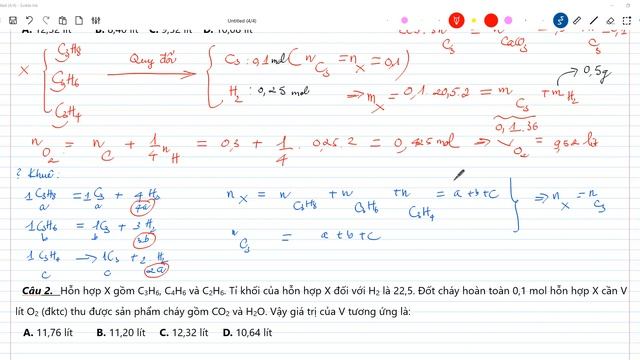 Untitled (4/4)
A. 12,32 lít B. 8,40 lít C. 9,52 lít D. 10,08 lít
C₃H₈
X C₃H₆ Quy đổi C₃ : 0,1 mol ( n C₃ = n X = 0,1 )
C₃H₄ H₂ : 0,25 mol ⇒ m X = 0,1 . 20,5.2 = m C₃ + m H₂
0,1.36
0,5g
n O₂ = n C + 1/4 n H = 0,3 + 1/4 . 0,25.2 = 0,425 mol ⇒ V O₂ = 9,52 lít
? Khuê:
1 C₃H₈ = 1 C₃ + 4 H₂
a a 4a
1 C₃H₆ = 1 C₃ + 3 H₂
b b 3b
1 C₃H₄ → 1 C₃ + 2 H₂
c c 2a
n X = n C₃H₈ + n C₃H₆ + n C₃H₄ = a + b + c
n C₃ = a + b + c
⇒ n X = n C₃
Câu 2. Hỗn hợp X gồm C3H6, C4H6 và C2H6. Tỉ khối của hỗn hợp X đối với H2 là 22,5. Đốt cháy hoàn toàn 0,1 mol hỗn hợp X cần V
lít O2 (đktc) thu được sản phẩm cháy gồm CO2 và H2O. Vậy giá trị của V tương ứng là:
A. 11,76 lít B. 11,20 lít C. 12,32 lít D. 10,64 lít